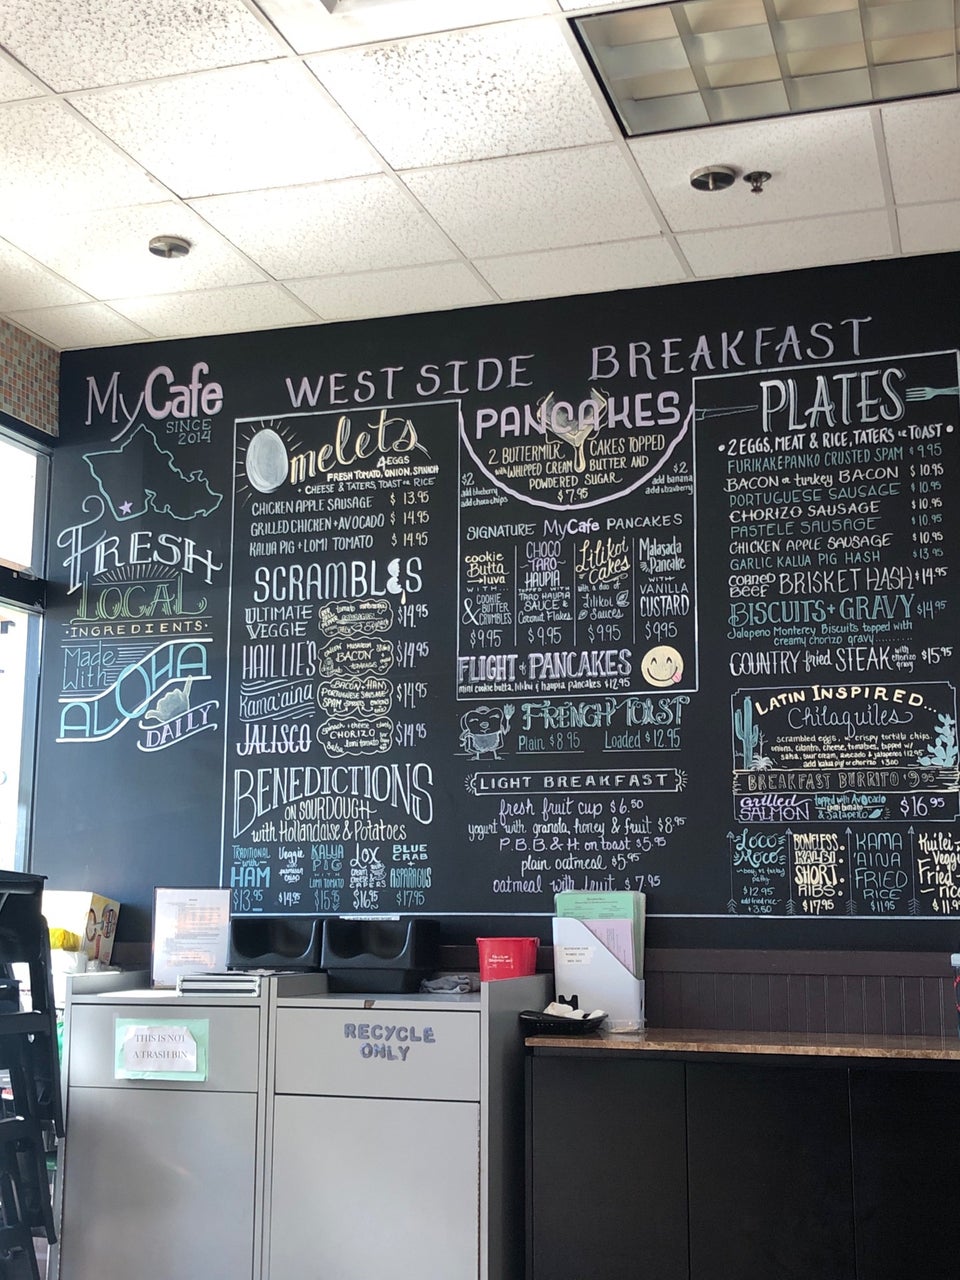 WEST SIDE BREAKFAST
My Cafe
SINCE
2014
FRESH
LOCAL
INGREDIENTS
Made
With
ALOHA
DAILY
Omelets
4 EGGS
FRESH TOMATO, ONION, SPINICH
+ CHEESE & TATERS, TOAST or RICE
CHICKEN APPLE SAUSAGE $13.95
GRILLED CHICKEN + AVOCADO $14.95
KALUA PIG + LOMI TOMATO $14.95
SCRAMBLES
ULTIMATE
VEGGIE
$14.95
HAILLIE'S
MUSHROOM
BACON
$14.95
Kama'aina
BACON + HAM
PORTUGUESE SAUSAGE
SPAM
$14.95
JALISCO
CHORIZO
$14.95
BENEDICTIONS
ON SOURDOUGH
with Hollandaise & Potatoes
TRADITIONAL
with
HAM
$13.95
Veggie
$14.95
KALUA
PIG
WITH
LOMI TOMATO
$15.95
LOX
$16.95
BLUE
CRAB
+
ASPARAGUS
$17.95
PANCAKES
2 BUTTERMILK CAKES TOPPED
with WHIPPED CREAM BUTTER AND
POWDERED SUGAR
$7.95
$2
add blueberry
add choco chips
$2
add banana
add strawberry
SIGNATURE MyCafe PANCAKES
Cookie
Butta
Luva
WITH
COOKIE
BUTTER
& CRUMBLES
$9.95
CHOCO
TARO
HAUPIA
TOPPED WITH
TARO HAUPIA
SAUCE &
Coconut Flakes
$9.95
Lilikoi
Cakes
with a duo of
Lilikoi
Sauces
$9.95
Malasada
Pancake
WITH
VANILLA
CUSTARD
$9.95
FLIGHT of PANCAKES
mini cookie butta, lilikoi & haupia pancakes $12.95
FRENCH TOAST
Plain $8.95 Loaded $12.95
LIGHT BREAKFAST
fresh fruit cup $6.50
yogurt with granola, honey & fruit $8.95
P.B.B.& H. on toast $5.95
plain oatmeal $5.95
oatmeal with fruit $7.95
PLATES
2 EGGS, MEAT & RICE, TATERS or TOAST
FURIKAKE PANKO CRUSTED SPAM $9.95
BACON or turkey BACON $10.95
PORTUGUESE SAUSAGE $10.95
CHORIZO SAUSAGE $10.95
PASTELE SAUSAGE $10.95
CHICKEN APPLE SAUSAGE $10.95
GARLIC KALUA PIG HASH $13.95
CORNED
BEEF BRISKET HASH $14.95
BISCUITS + GRAVY $14.95
Jalapeno Monterey Biscuits topped with
creamy chorizo gravy
COUNTRY fried STEAK with chorizo gravy $15.95
LATIN INSPIRED...
Chilaquiles
scrambled eggs, crispy tortilla chips
onions, cilantro, cheese, tomatoes, topped w/
salsa, sour cream, avocado & jalapenos $12.95
add kalua pig or chorizo $3.00
BREAKFAST BURRITO $9.95
Grilled
SALMON
topped with Avocado
lomi tomato
& Jalapeño
$16.95
LOCO
MOCO
$12.95
add fried rice
+3.50
BONELESS
KALBI
SHORT
RIBS
$17.95
KAMA
'AINA
FRIED
RICE
$11.95
Kuilei
Veggie
Fried
rice
$11.9
THIS IS NOT
A TRASH BIN
RECYCLE
ONLY